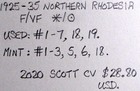 1925-35 NORTHERN RHODESIA
F/VF */⊙
USED: #1-7, 18, 19.
MINT: #1-3, 5, 6, 18.
2020 SCOTT CV $28.80
USD.